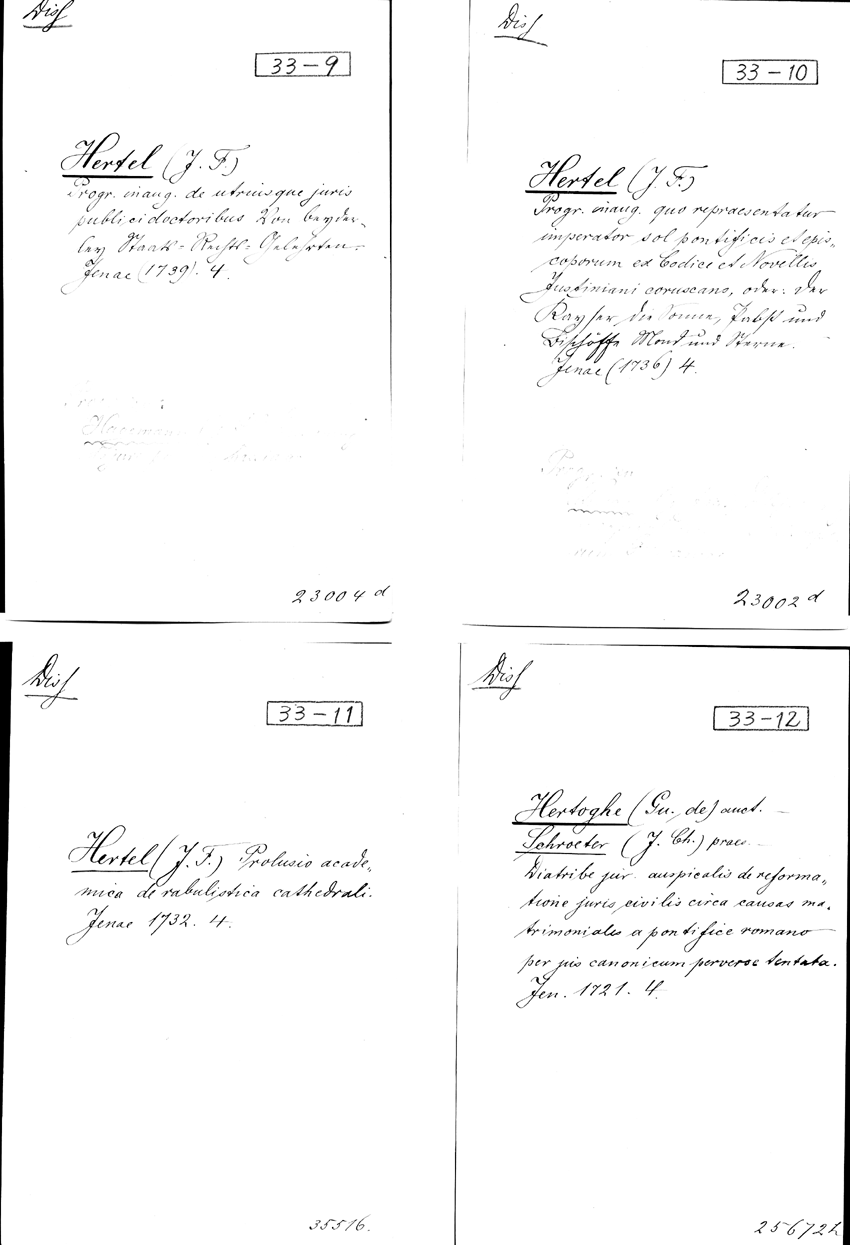 Diss
33-9
Hertel (J. F.)
Progr. inaug. de utriusque juris
publici doctoribus Von beyder-
ley Staats- Rechts- Gelehrten.
Jenae (1739). 4.
23004 d
Diss
33-10
Hertel (J. F.)
Progr. inaug. quo repraesentatur
imperator sol pontificis et epis-
coporum ex Codice et Novellis
Justiniani coruscans, oder: Der
Kayser die Sonne, Pabst und
Bischöffe Mond und Sterne.
Jenae (1736) 4.
Progr.
23002 d
Diss
33-11
Hertel (J. F.) Prolusio acade-
mica de rabulistica cathedrali.
Jenae 1732. 4.
35516.
Diss
33-12
Hertoghe (Gu. de) auct. —
Schroeter (J. Ch.) praes. —
Diatribe jur. auspicalis de reforma-
tione juris civilis circa causas ma-
trimoniales a pontifice romano
per jus canonicum perverse tentata.
Jen. 1721. 4.
25672